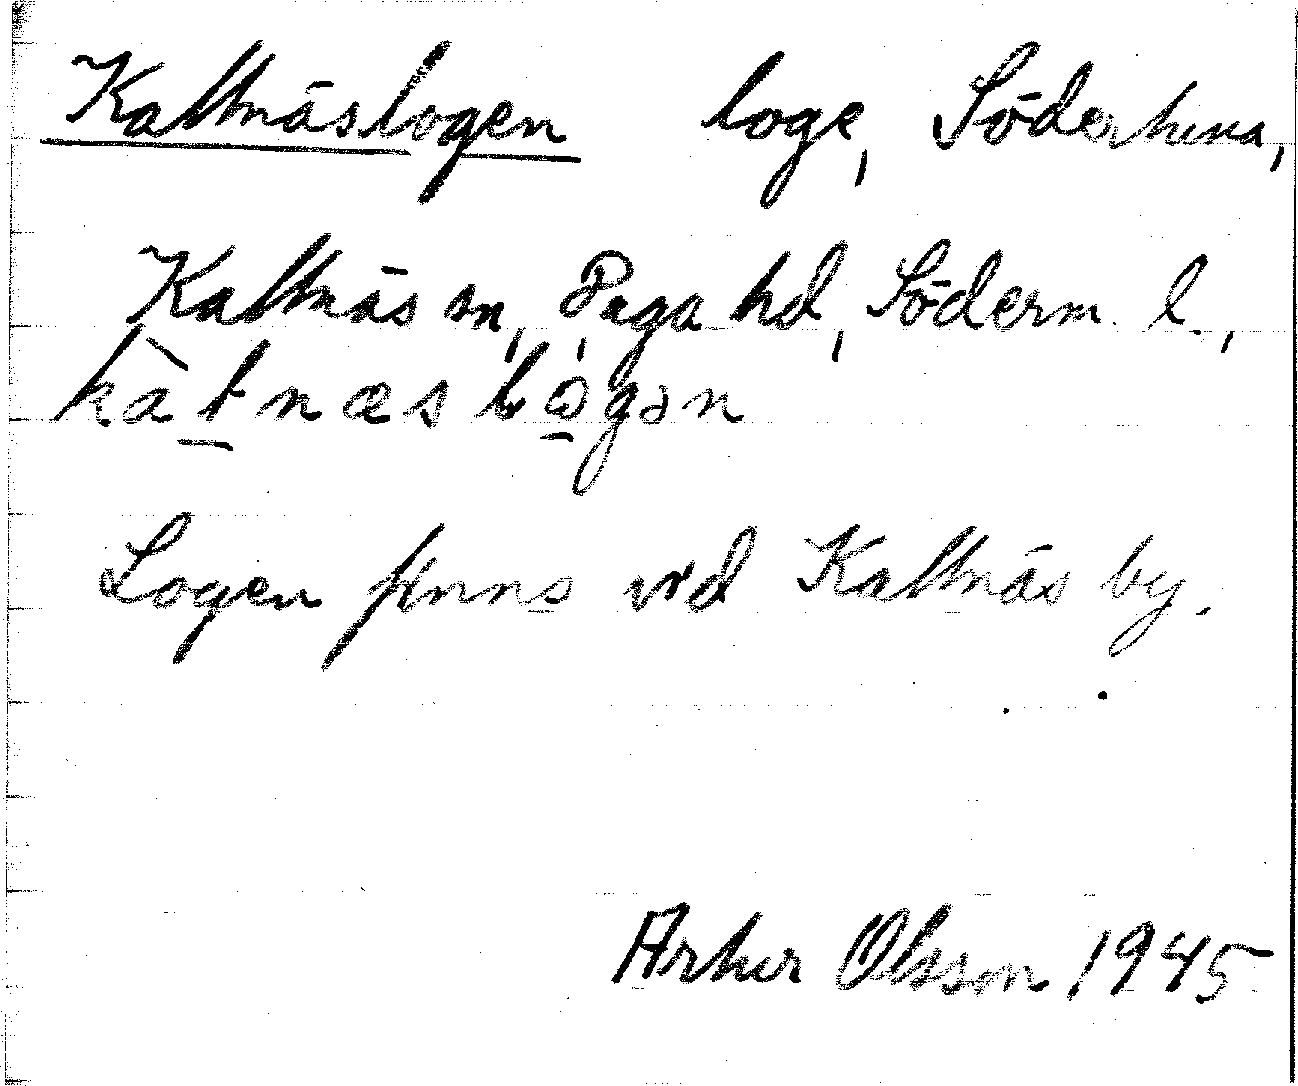 Kattnäslogen loge, Södertuna,
Kattnäs sn, Daga hd, Söderm. l.,
kàt̲næslɷ̲́gən
Logen finns vid Kattnäs by.
Artur Olsson 1945